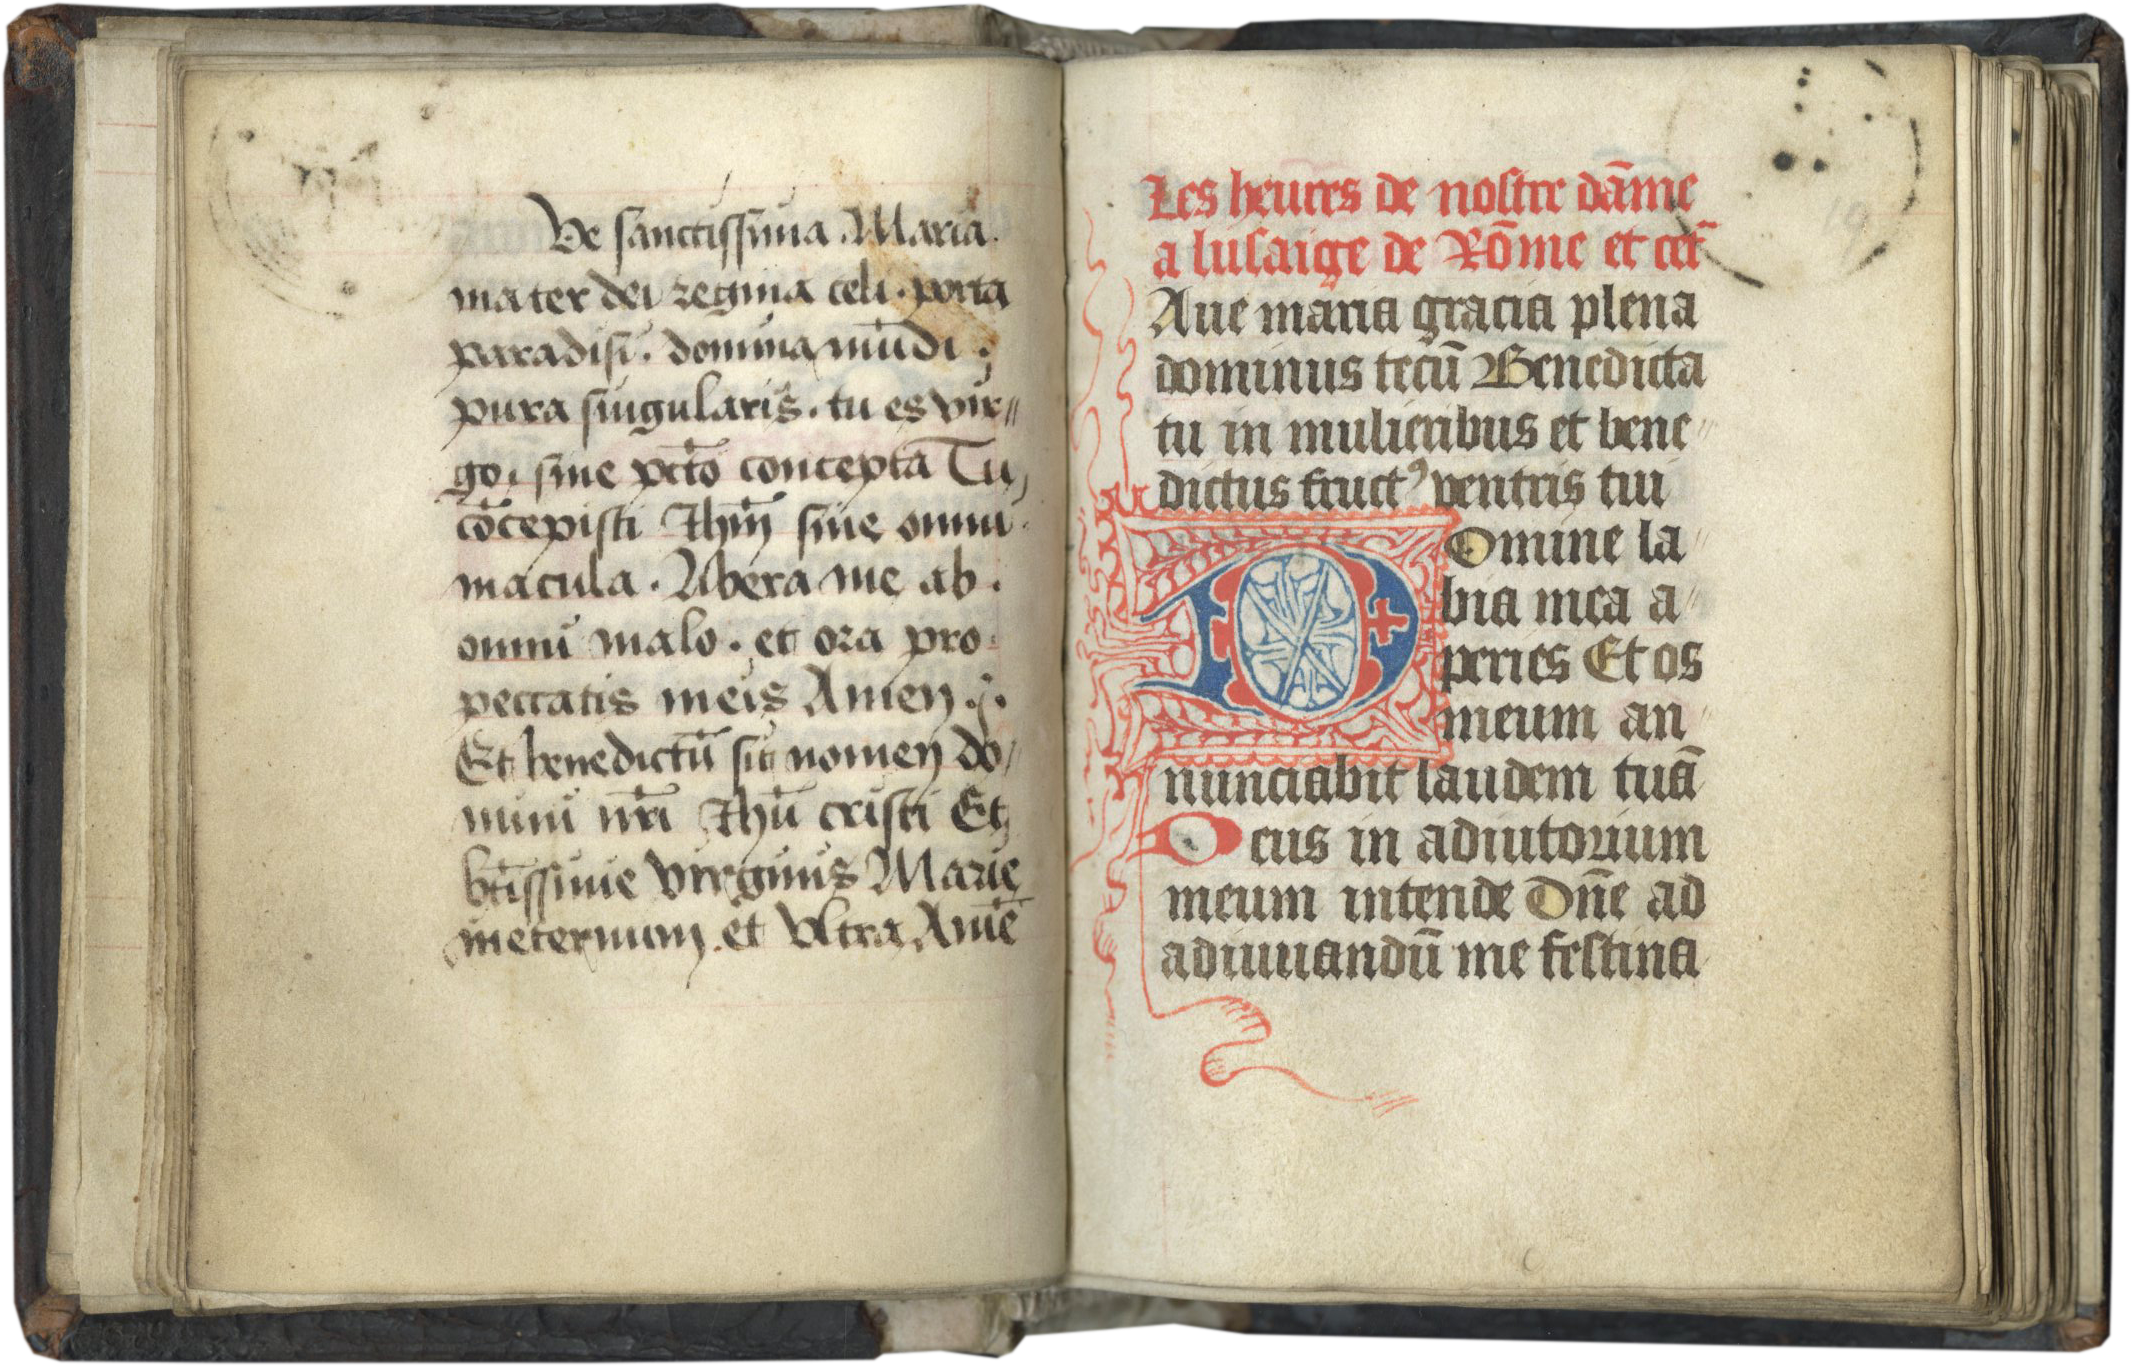 Ve sanctissima Maria.
mater dei regina celi. porta
paradisi. domina mūdi.
pura singularis. tu es vir=
go. sine pctō concepta Tu
cōcepisti Jhm̄ sine omni
macula. libera me ab.
omni malo. et ora pro
peccatis meis Amen.
Et benedictū sit nomen do=
mini nr̄i Jhū cristi Et
bt̄issime virginis Marie
ineternum et Vltra Amē
Les heures de nostre dāme
a lusaige de Rōme et cet̄
Aue maria gracia plena
dominus tecū Benedicta
tu in mulieribus et bene=
dictus fructꝰ ventris tui
Domine la=
bia mea a=
peries Et os
meum an=
nunciabit laudem tuā
Deus in adiutorium
meum intende Dn̄e ad
adiuuandū me festina
19